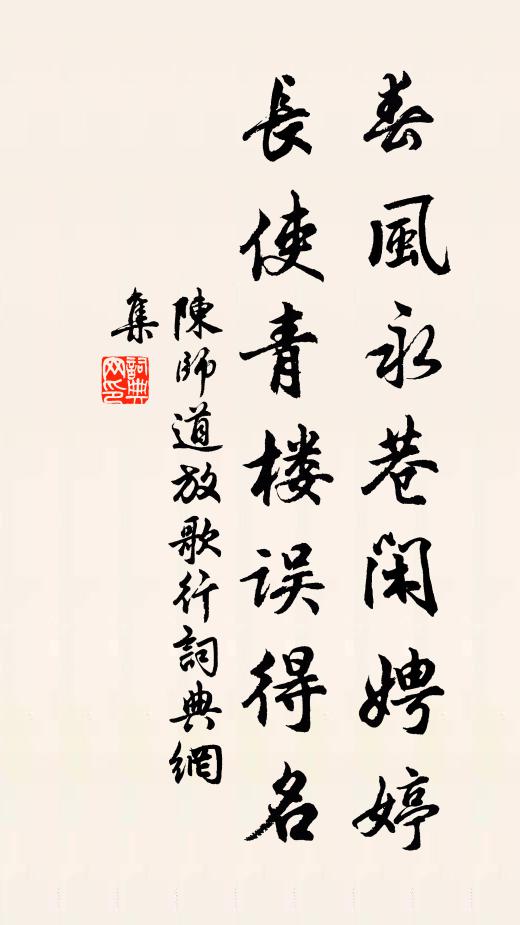 春風永巷闲娉婷
長使青楼误得名
陳師道放歌行詞典網
集
詞典网印